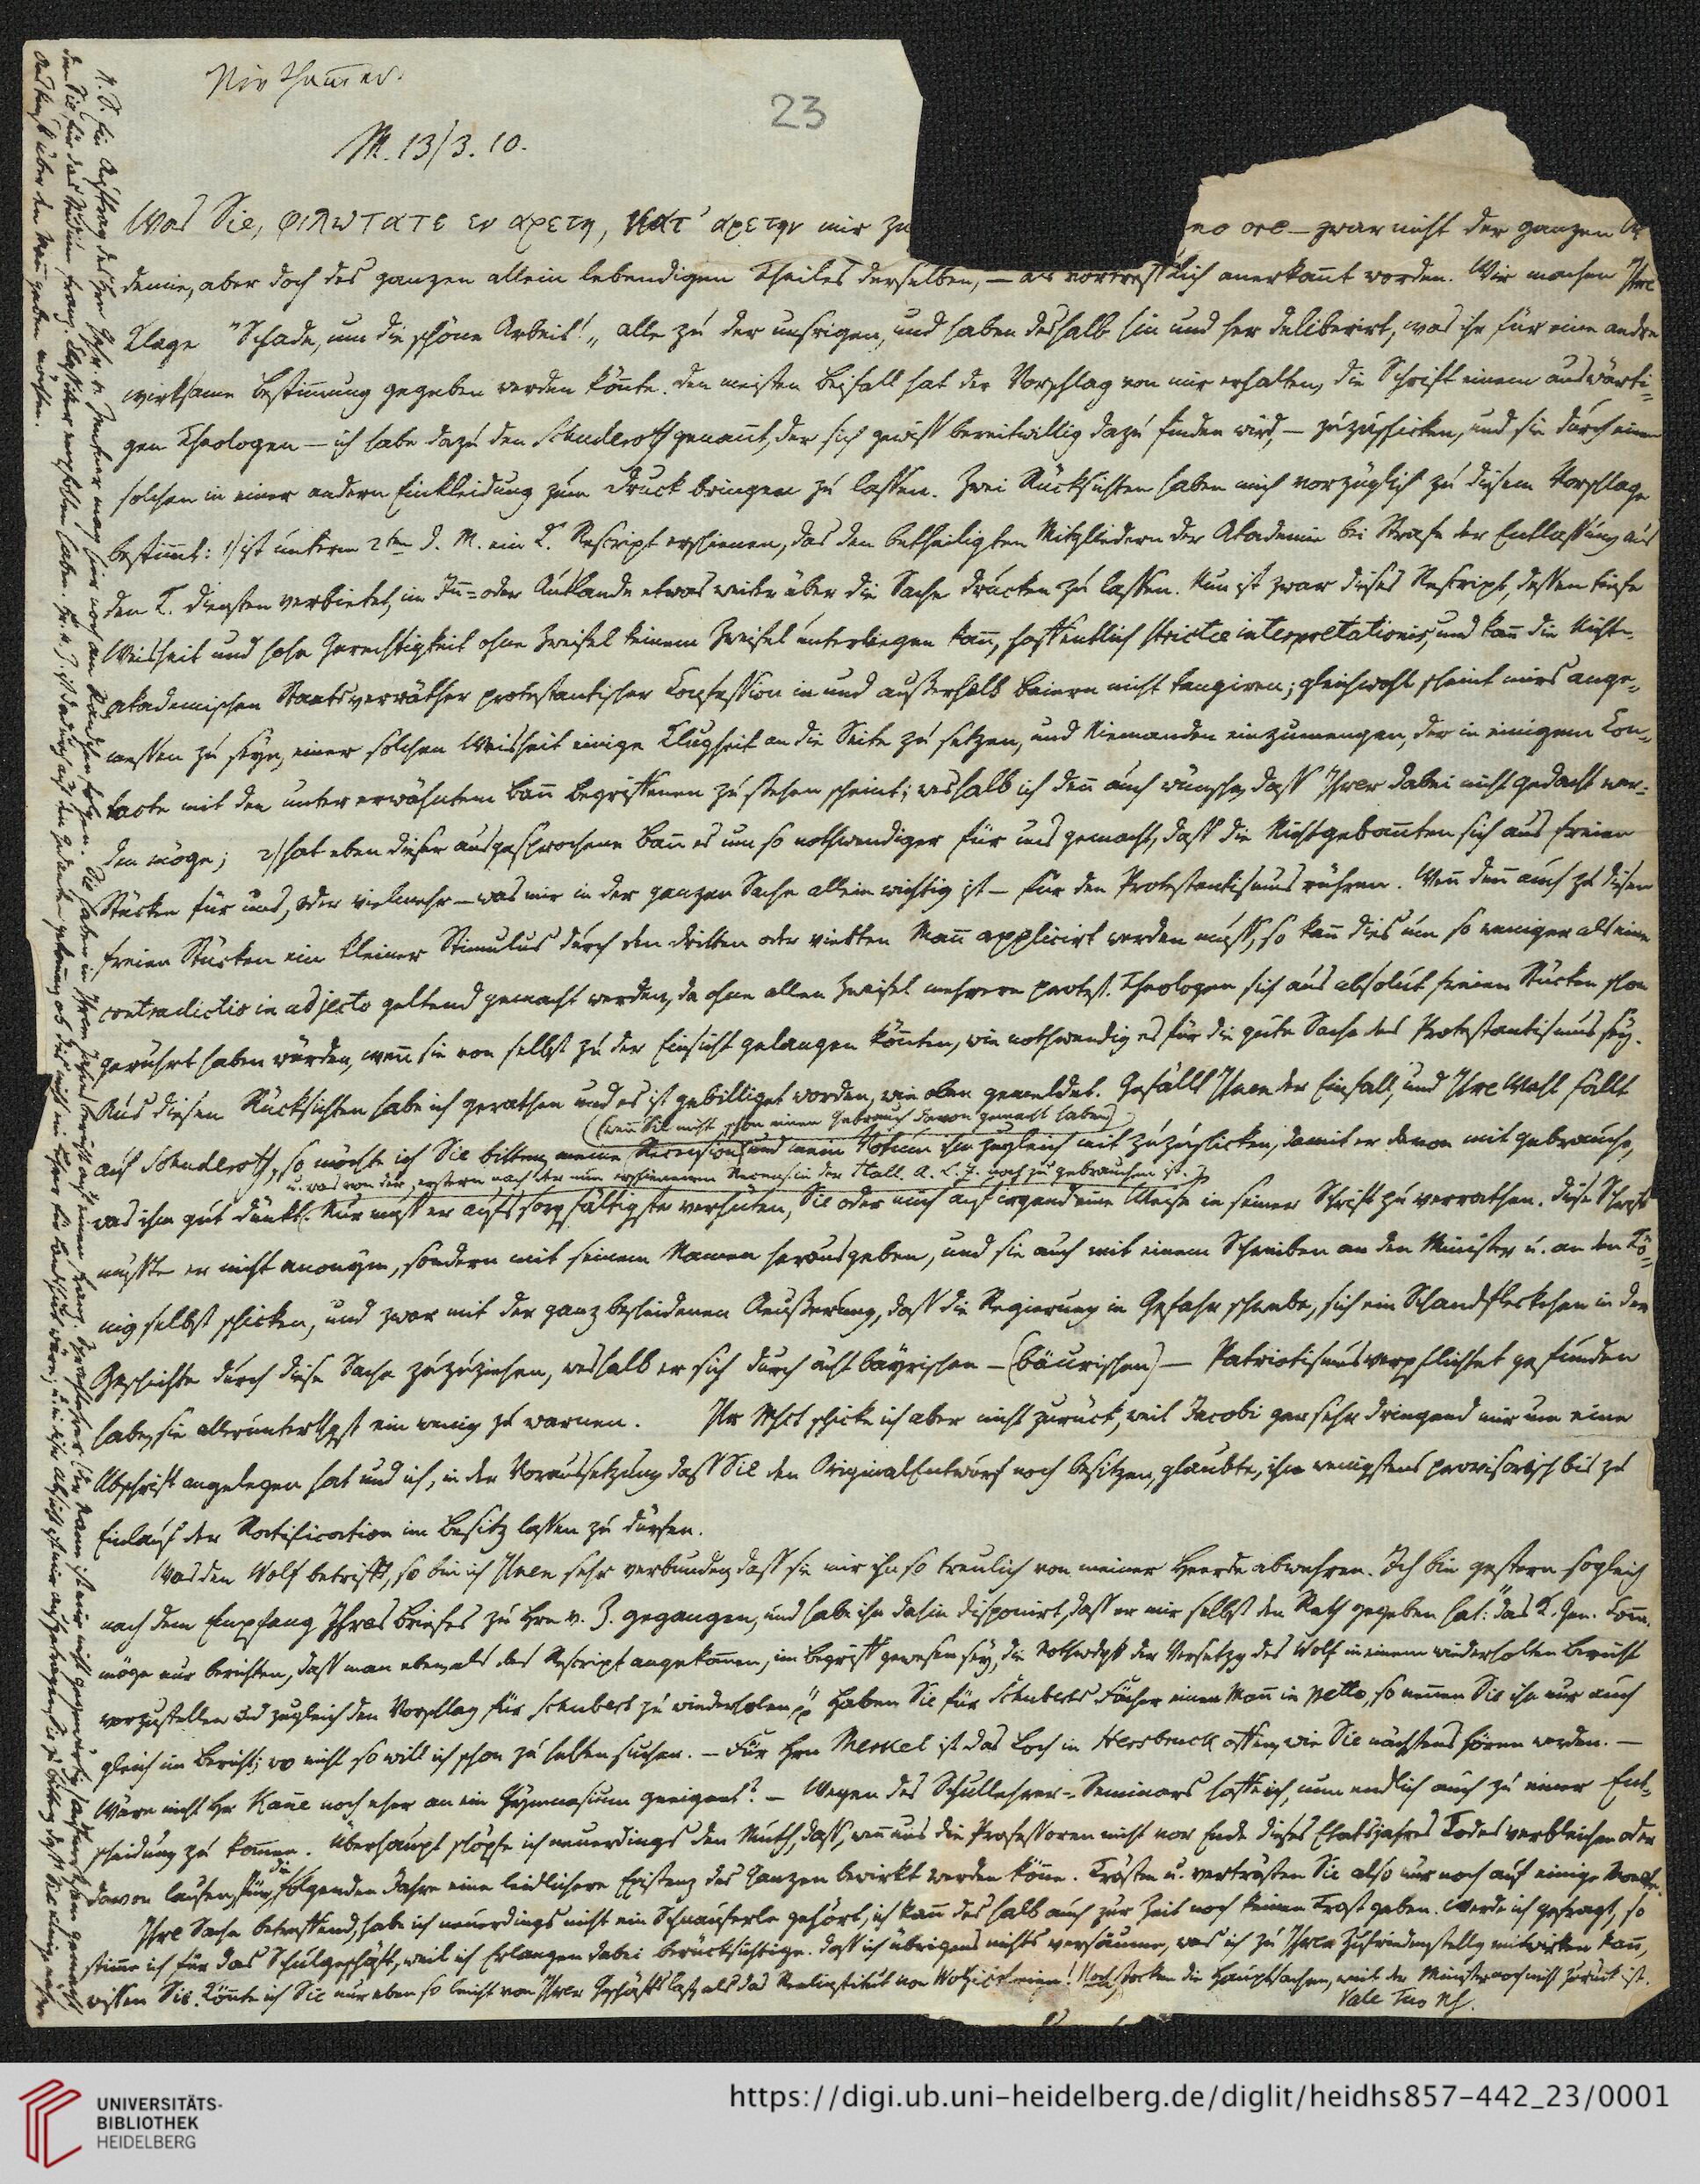 Niethammer.
23
M. 13/3. 10.
Was Sie, φιλωτατε εν αρετη, κατ' αρετην mir zu no ore — zwar nicht der ganzen
demie, aber doch des ganzen allein lebendigen Theiles derselben, — als vortrefflich anerkannt worden. Wir machen Ihre
Klage "Schade, um die schöne Arbeit!„ alle zu der unsrigen, und haben deshalb hin und her deliberirt, was ihr für eine andre
wirksame Bestimmung gegeben werden könnte. Den meisten Beifall hat der Vorschlag von mir erhalten, die Schrift einem auswärti-
gen Theologen — ich habe dazu den Schuderoff genannt, der sich gewiß bereitwillig dazu finden wird, — zuzuschicken, und sie durch einen
solchen in einer andern Einkleidung zum Druck bringen zu lassen. Zwei Rücksichten haben mich vorzüglich zu diesem Vorschlage
bestimmt: 1) ist unterm 2ten d. M. ein K. Rescript erschienen, das den betheiligten Mitgliedern der Akademie bei Strafe der Entlassung aus
den K. Diensten verbietet, im In- oder Auslande etwas weiter über die Sache drucken zu lassen. Nun ist zwar dieses Rescript, dessen tiefe
Weisheit und hohe Gerechtigkeit ohne Zweifel keinem Zweifel unterliegen kann, hoffentlich strictae interpretationis, und kann die Nicht-
akademischen Staatsverräther protestantischer Confession in und außerhalb Baiern nicht tangiren; gleichwohl scheint mirs ange-
messen zu seyn, einer solchen Weisheit einige Klugheit an die Seite zu setzen, und Niemanden einzumengen, der in einigem Con-
tacte mit den unter erwähntem Bann begriffenen zu stehen scheint; weshalb ich denn auch wünsche, daß Ihrer dabei nicht gedacht wer-
den möge; 2) hat eben dieser ausgesprochene Bann es um so nothwendiger für uns gemacht, daß die Nichtgebannten sich aus freien
Stücken für uns, oder vielmehr — was mir in der ganzen Sache allein wichtig ist — für den Protestantismus rühren. Wenn denn auch zu diesen
freien Stücken ein kleiner Stimulus durch den dritten oder vierten Mann applicirt werden muß, so kann dies um so weniger als eine
contradictio in adjecto geltend gemacht werden, da ohne allen Zweifel mehrere protest. Theologen sich aus absolut freien Stücken schon
gerührt haben würden, wenn sie von selbst zu der Einsicht gelangen könnten, wie nothwendig es für die gute Sache des Protestantismus sey.
Aus diesen Rücksichten habe ich gerathen und es ist gebilliget worden, wie oben gemeldet. Gefällt Ihnen der Einfall, und Ihre Wahl fällt
(wenn Sie nicht schon einen Gebrauch davon gemacht haben)
auf Schuderoff, so möchte ich Sie bitten, meine Recension und mein Votum ihm zugleich mit zuzuschicken, damit er davon mit gebrauche,
u. was von der erstern nach der nun erschienenen Recension der Hall. A. L. Z. noch zu gebrauchen ist.
was ihm gut dünkt. Nur muß er aufs sorgfältigste verhüten, Sie oder mich auf irgend eine Weise in seiner Schrift zu verrathen. Diese Schrift
müßte er nicht anonym, sondern mit seinem Namen herausgeben, und sie auch mit einem Schreiben an den Minister u. an den Kö-
nig selbst schicken, und zwar mit der ganz bescheidenen Aeußerung, daß die Regierung in Gefahr schwebe, sich ein Schandfleckchen in der
Geschichte durch diese Sache zuzuziehen, weshalb er sich durch ächt bayrischen — (bäurischen) — Patriotismus verpflichtet gefunden
habe, sie allerunterthgst ein wenig zu warnen. Ihr Mspt schicke ich aber nicht zurück, weil Jacobi gar sehr dringend mir um eine
Abschrift angelegen hat und ich, in der Voraussetzung daß Sie den OriginalEntwurf noch besitzen, glaubte, ihm wenigstens provisorisch bis zu
Einlauf der Ratification im Besitz lassen zu dürfen.
Was den Wolf betrifft, so bin ich Ihnen sehr verbunden, daß sie mir ihn so treulich von meiner Heerde abwehren. Ich bin gestern sogleich
nach dem Empfang Ihres Briefes zu Hrn v. Z. gegangen, und habe ihn dahin disponirt, daß er mir selbst den Rath gegeben hat: "das K. Gen. Comm.
möge nur berichten, daß man eben, als das Rescript angekommen, im Begriff gewesen sey, die Nothwdgk der Versetzg des Wolf in einem wiederholten Bericht
vorzustellen und zugleich den Vorschlag für Schubert zu wiederholen" Haben Sie für Schuberts Fächer einen Mann in petto, so nennen Sie ihn nur auch
gleich im Bericht; wo nicht so will ich schon zu helfen suchen. — Für Hrn Merkel ist das Loch in Hersbruck offen, wie Sie nächstens hören werden. —
Wäre nicht Hr Kanne noch eher an ein Gymnasium geeigent? — Wegen des Schullehrer-Seminars hoffe ich, nun endlich auch zu einer Ent-
scheidung zu kommen. Überhaupt schöpfe ich neuerdings den Muth, daß, wenn uns die Professoren nicht vor Ende dieses Etatsjahres Todes verbleichen oder
davon laufen, fürs folgenden Jahre eine leidlichere Existenz des Ganzen bewirkt werden könne. Trösten u. vertrösten Sie also nur noch auf einige Monathe.
Ihre Sache betreffend, habe ich neuerdings nicht ein Schnauferle gehört, ich kann deshalb auch zur Zeit noch keinen Trost geben. Werde ich gefragt, so
stimme ich für das Schulgeschäft, weil ich Erlangen dabei berücksichtige. Daß ich übrigens nichts versäume, was ich zu Ihrer Zufriedenstellg mitwirken kann,
wissen Sie. Könnte ich Sie nur eben so leicht von Ihrer Geschäftslast, als das Realinstitut von Wolf befreien! Noch stocken die Hauptsachen, weil der Minister noch nicht zurück ist.
Vale Tuo Nh.
UNIVERSITÄTS-
BIBLIOTHEK
HEIDELBERG
https://digi.ub.uni-heidelberg.de/diglit/heidhs857-442_23/0001